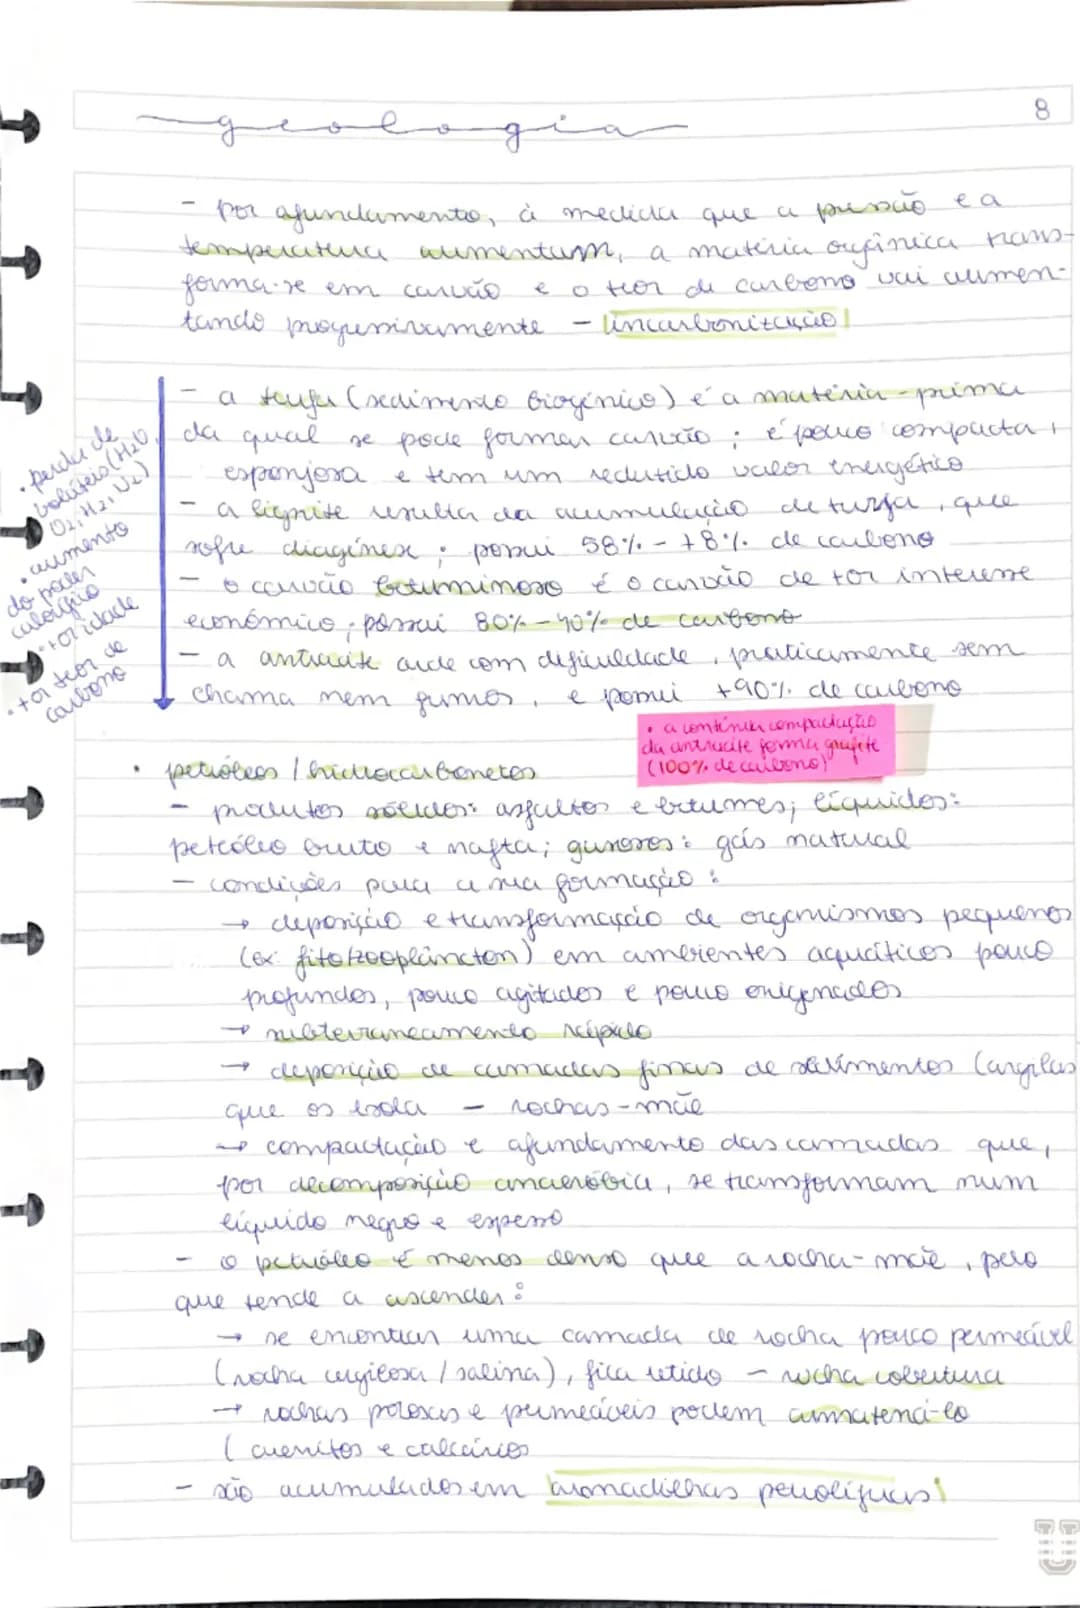 geologia
8
- por afundamento, à medida que a pressão e a
temperatura aumentam, a matéria orgânica trans-
forma-se em carvão e o teor de carbono vai aumen-
tando progressivamente - incarbonização!
- a turfa (sedimento biogénico) é a matéria-prima
da qual se pode formar carvão ; é pouco compacta,
esponjosa e tem um reduzido valor energético
- a lignite resulta da acumulação de turfa, que
sofre diagénese ; possui 58% - 78% de carbono
- o carvão betuminoso é o carvão de +or interesse
económico ; possui 80% - 90% de carbono
- a antracite arde com dificuldade, praticamente sem
chama nem fumos, e possui +90% de carbono
• perda de
voláteis (H2O,
O2, H2, N2)
• aumento
do poder
calorífico
• +or idade
• +or teor de
carbono
• a contínua compactação
da antracite forma grafite
(100% de carbono)
• petróleos / hidrocarbonetos
- produtos sólidos: asfaltos e betumes; líquidos:
petróleo bruto e nafta; gasosos: gás natural
- condições para a sua formação :
→ deposição e transformação de organismos pequenos
(ex: fito/zooplâncton) em ambientes aquáticos pouco
profundos, pouco agitados e pouco oxigenados
→ subterraneamento rápido
→ deposição de camadas finas de sedimentos (argilas
que os isola - rochas-mãe
→ compactação e afundamento das camadas que,
por decomposição anaeróbia, se transformam num
líquido negro e espesso
- o petróleo é menos denso que a rocha-mãe, pelo
que tende a ascender :
→ se encontrar uma camada de rocha pouco permeável
(rocha argilosa / salina), fica retido - rocha cobertura
→ rochas porosas e permeáveis podem armazená-lo
( arenitos e calcários
- são acumulados em armadilhas petrolíferas!
U